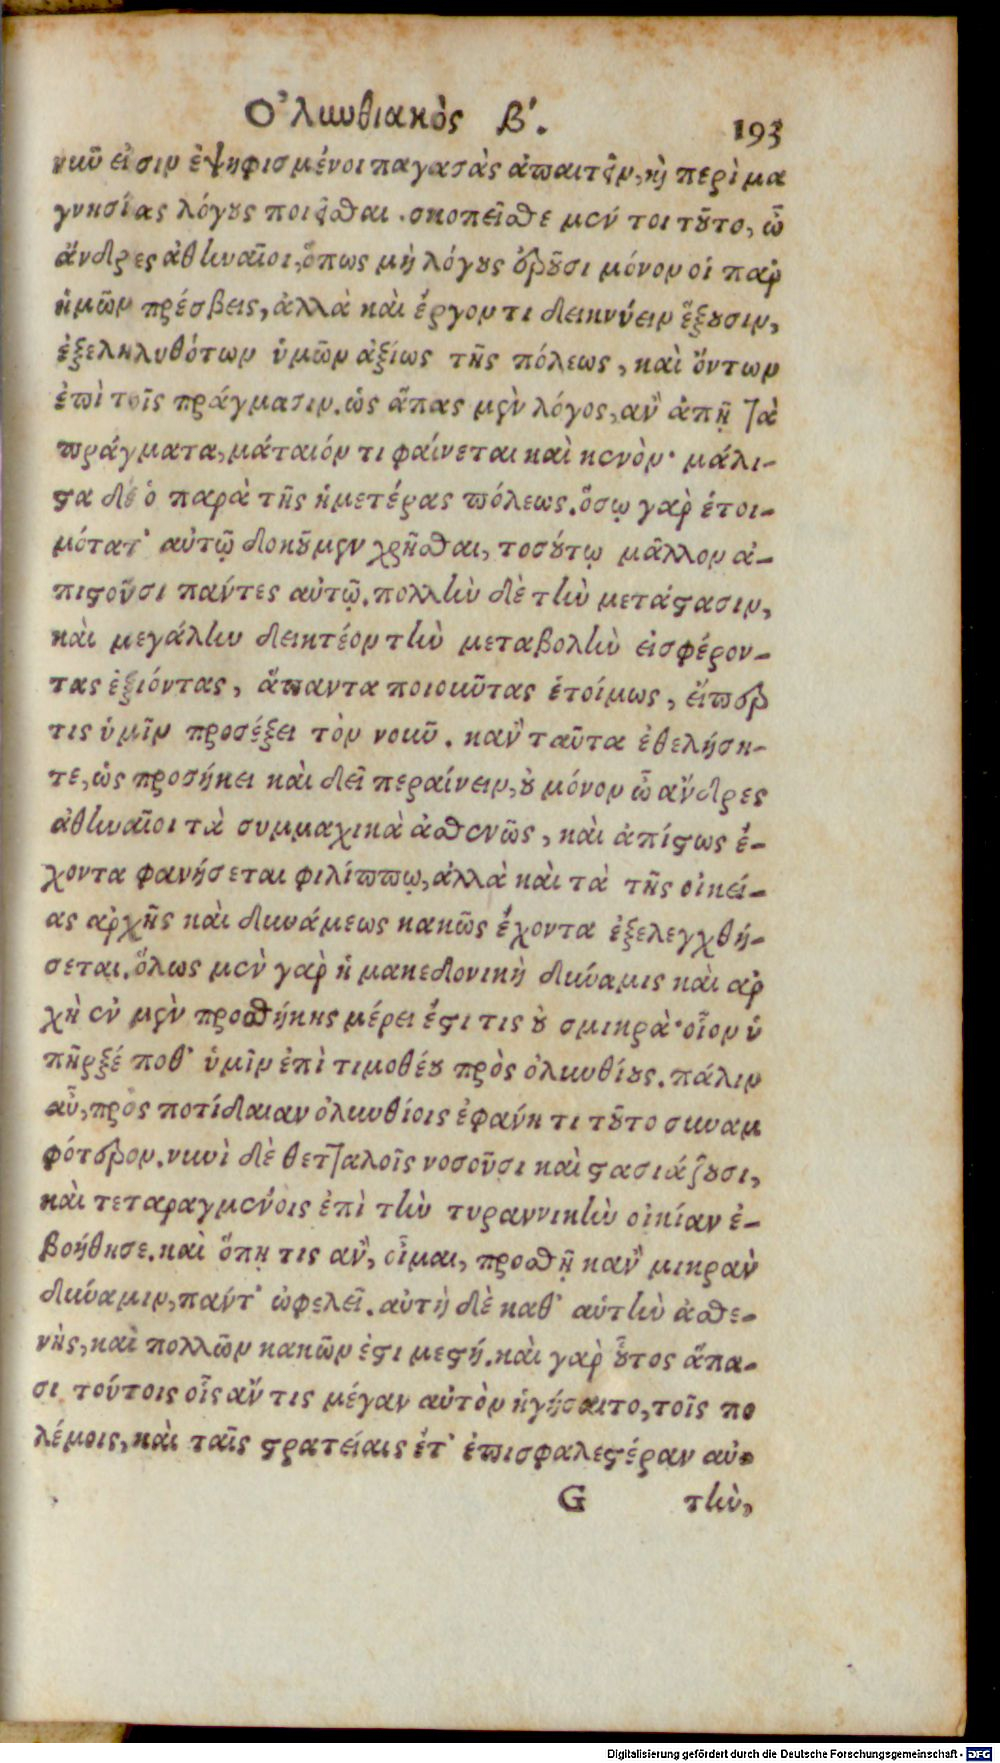 Ὀλυνθιακὸς β΄. 193
νῦν εἰσιν ἐψηφισμένοι παγασὰς ἀπαιτεῖν, καὶ περὶ μα
γνησίας λόγους ποιεῖσθαι. σκοπεῖσθε μέν τοι τοῦτο, ὦ
ἄνδρες ἀθηναῖοι, ὅπως μὴ λόγους ἐροῦσι μόνον οἱ παρ
ἡμῶν πρέσβεις, ἀλλὰ καὶ ἔργον τι δεικνύειν ἕξουσιν,
ἐξεληλυθότων ὑμῶν ἀξίως τῆς πόλεως, καὶ ὄντων
ἐπὶ τοῖς πράγμασιν. ὡς ἅπας μὲν λόγος, ἂν ἀπῇ τὰ
πράγματα, μάταιόν τι φαίνεται καὶ κενὸν· μάλι-
στα δὲ ὁ παρὰ τῆς ἡμετέρας πόλεως. ὅσῳ γὰρ ἑτοι-
μότατ' αὐτῷ δοκοῦμεν χρῆσθαι, τοσούτῳ μᾶλλον ἀ-
πιστοῦσι πάντες αὐτῷ. πολλὴν δὲ τὴν μετάστασιν,
καὶ μεγάλην δεικτέον τὴν μεταβολὴν εἰσφέρον-
τας ἐξιόντας, ἅπαντα ποιοῦντας ἑτοίμως, εἴπερ
τις ὑμῖν προσέξει τὸν νοῦν. κἂν ταῦτα ἐθελήση-
τε, ὡς προσήκει καὶ δεῖ περαίνειν, οὐ μόνον ὦ ἄνδρες
ἀθηναῖοι τὰ συμμαχικὰ ἀσθενῶς, καὶ ἀπίστως ἔ-
χοντα φανήσεται φιλίππῳ, ἀλλὰ καὶ τὰ τῆς οἰκεί-
ας ἀρχῆς καὶ δυνάμεως κακῶς ἔχοντα ἐξελεγχθή-
σεται. ὅλως μὲν γὰρ ἡ μακεδονικὴ δύναμις καὶ ἀρ
χὴ ἐν μὲν προσθήκης μέρει ἐστι τις οὐ σμικρὰ· οἷον ὑ
πῆρξέ ποθ' ὑμῖν ἐπὶ τιμοθέου πρὸς ὀλυνθίους. πάλιν
αὖ, πρὸς ποτίδαιαν ὀλυνθίοις ἐφάνη τι τοῦτο συναμ
φότερον. νυνὶ δὲ θετταλοῖς νοσοῦσι καὶ στασιάζουσι,
καὶ τεταραγμένοις ἐπὶ τὴν τυραννικὴν οἰκίαν ἐ-
βοήθησε. καὶ ὅπη τις ἂν, οἶμαι, προσθῇ κἂν μικρὰν
δύναμιν, πάντ' ὠφελεῖ. αὐτὴ δὲ καθ' αὑτὴν ἀσθε-
νὴς, καὶ πολλῶν κακῶν ἐστι μεστή. καὶ γὰρ οὗτος ἅπα-
σι τούτοις οἷς ἄν τις μέγαν αὐτὸν ἡγήσαιτο, τοῖς πο
λέμοις, καὶ ταῖς στρατείαις ἔτ' ἐπισφαλεστέραν αὐ-
G τὴν,
Digitalisierung gefördert durch die Deutsche Forschungsgemeinschaft - DFG